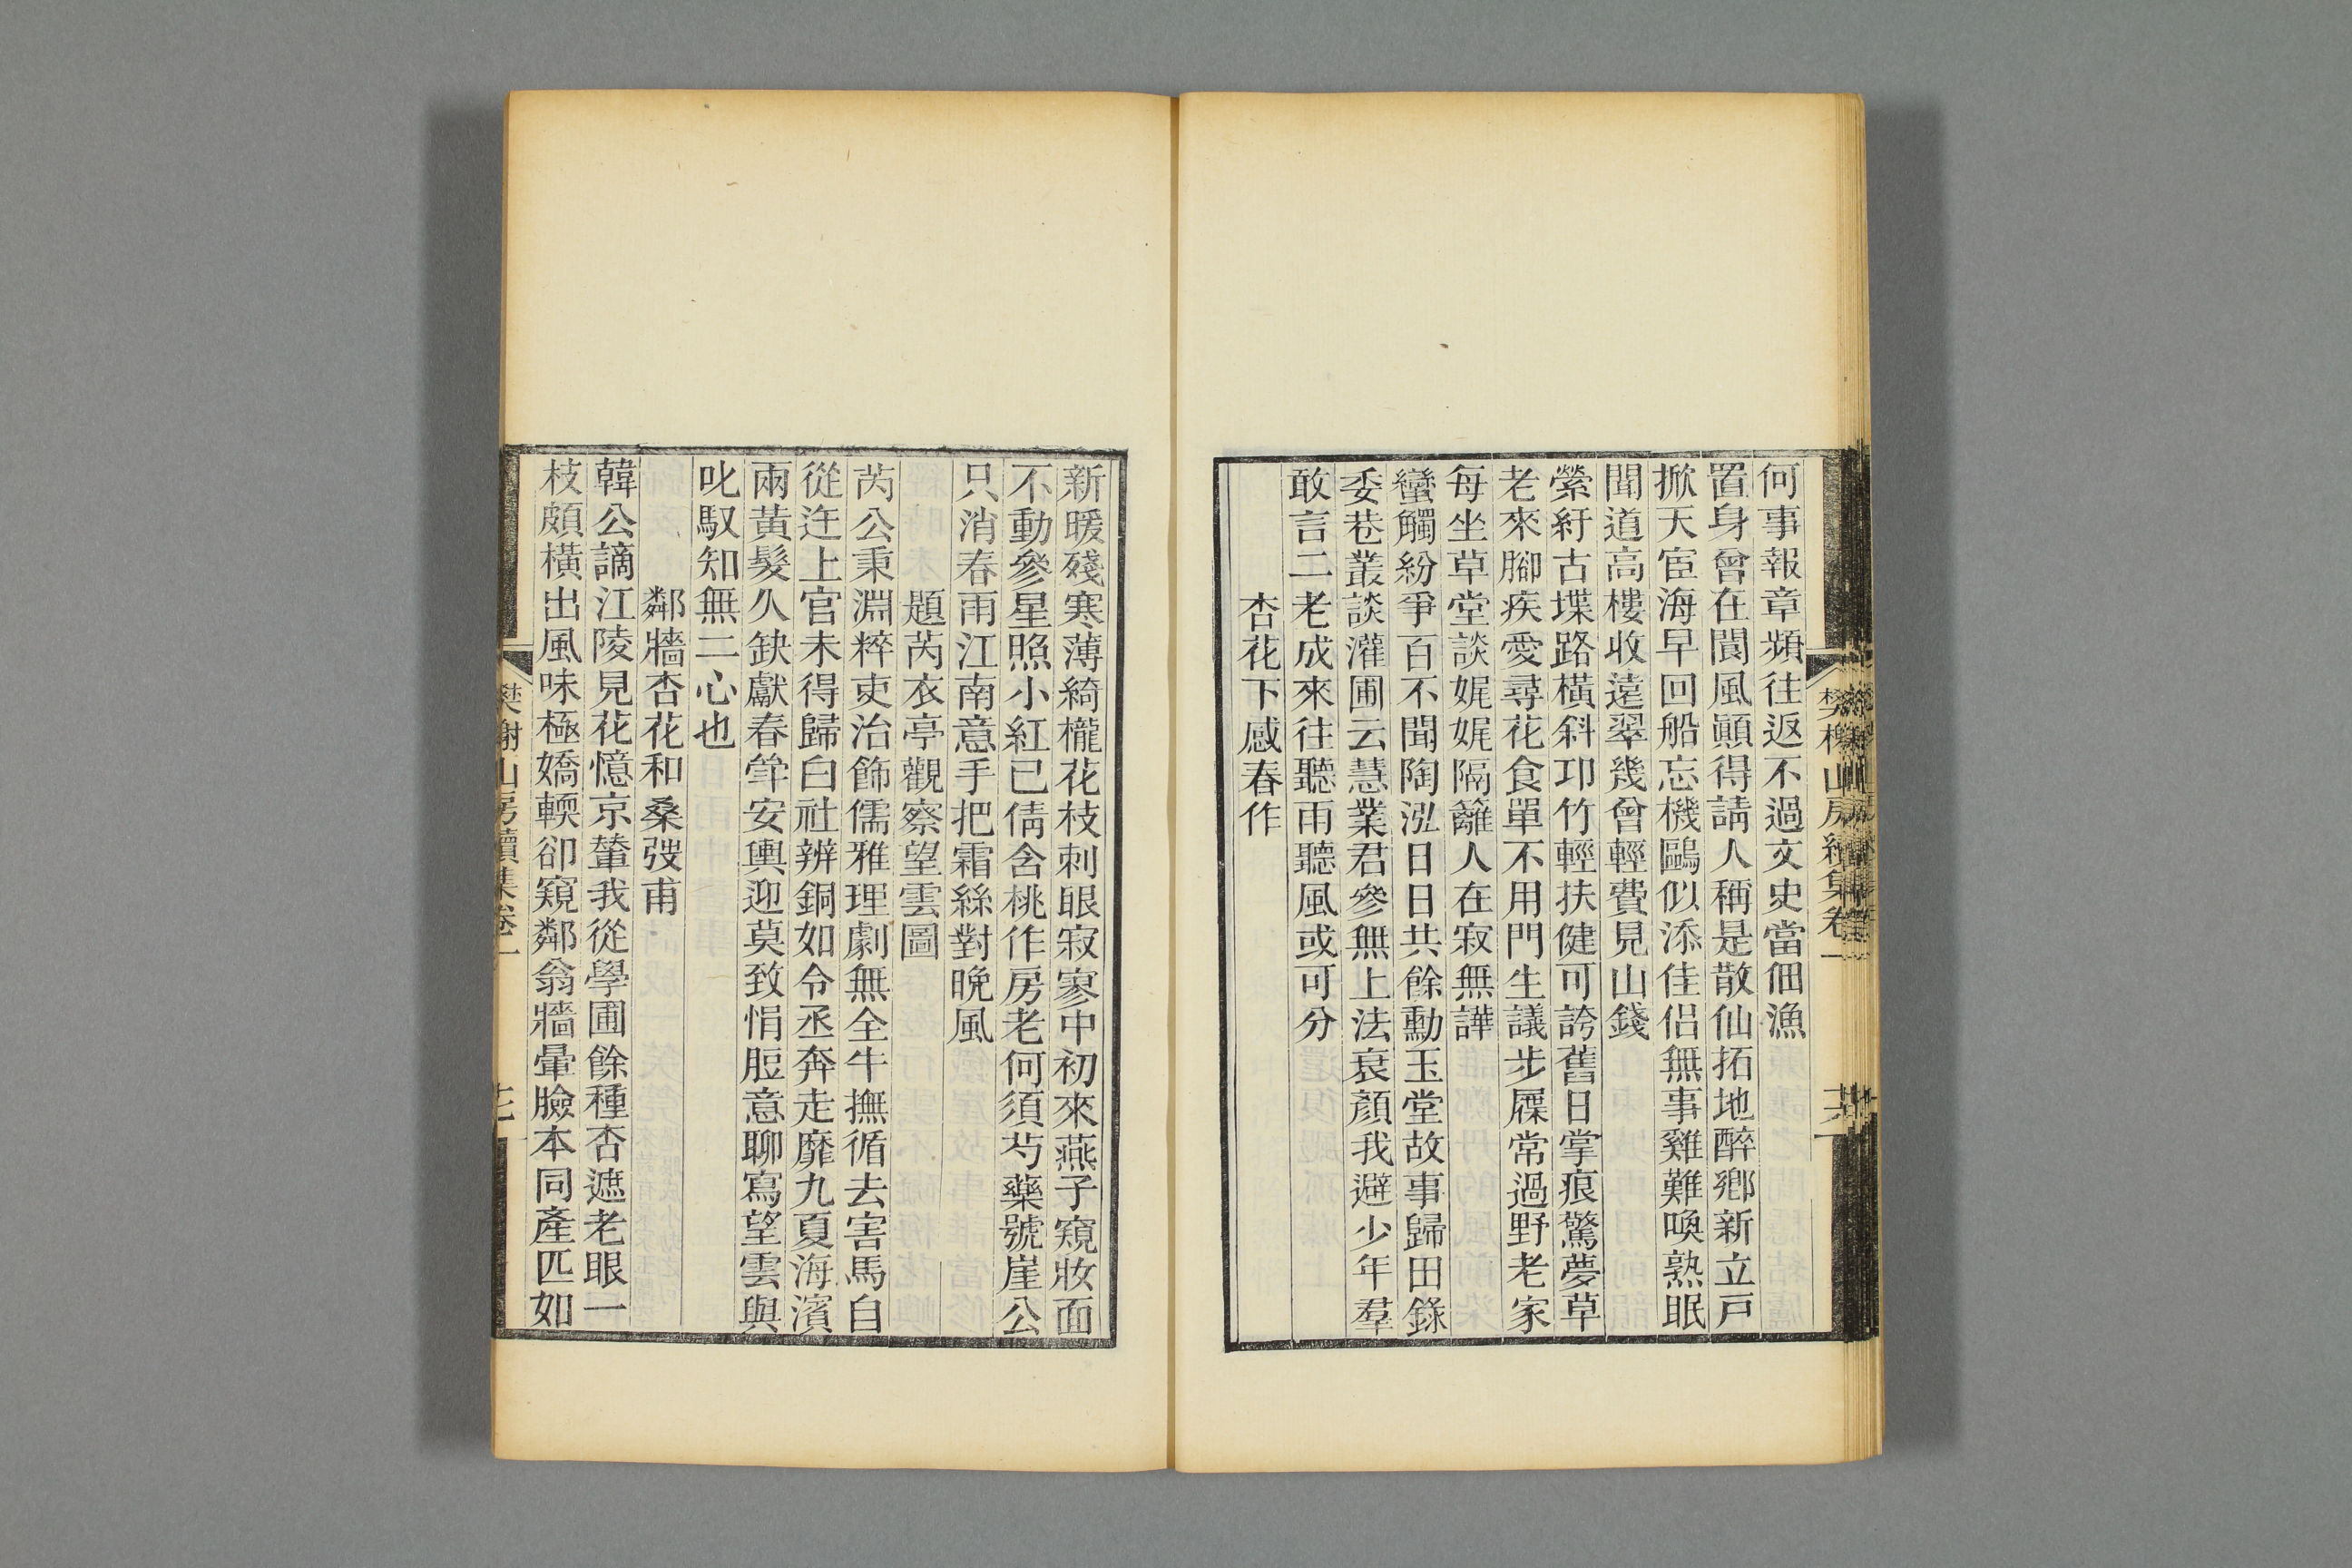 樊榭山房續集卷一
何事報章頻往返不過文史當佃漁
置身曾在閬風顚得請人稱是散仙拓地醉鄕新立戸
掀天宦海早回船忘機鷗似添佳侶無事雞難喚熟眠
聞道高樓收遠翠幾曾輕費見山錢
縈紆古堞路橫斜卭竹輕扶健可誇舊日掌痕驚夢草
老來腳疾愛尋花食單不用門生議步屧常過野老家
每坐草堂談娓娓隔籬人在寂無譁
蠻觸紛爭百不聞陶泓日日共餘勳玉堂故事歸田錄
委巷叢談灌圃云慧業君參無上法衰顏我避少年羣
敢言二老成來往聽雨聽風或可分
杏花下感春作
新暖殘寒薄綺櫳花枝刺眼寂寥中初來燕子窺妝面
不動參星照小紅已倩含桃作房老何須芍藥號崖公
只消春雨江南意手把霜絲對晚風
題芮衣亭觀察望雲圖
芮公秉淵粹吏治飾儒雅理劇無全牛撫循去害馬自
從迕上官未得歸白社辨銅如令丞奔走靡九夏海濱
兩黃髮久缺獻春斝安輿迎莫致悁脰意聊寫望雲與
叱馭知無二心也
鄰牆杏花和桑弢甫
韓公謫江陵見花憶京輦我從學圃餘種杏遮老眼一
枝頗橫出風味極嬌輭卻窺鄰翁牆暈臉本同產匹如
樊榭山房續集卷一